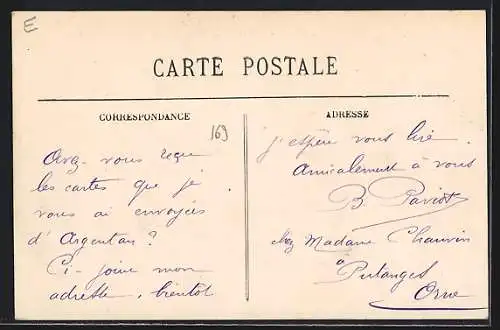 E
CARTE POSTALE
CORRESPONDANCE
ADRESSE
169
Avez-vous reçu
les cartes que je
vous ai envoyées
d'Argentan?
Ci-joint mon
adresse, bientôt
j'espère vous lire.
Amicalement à vous
B. Pariot
chez Madame Chauvin
à
Putanges
Orne